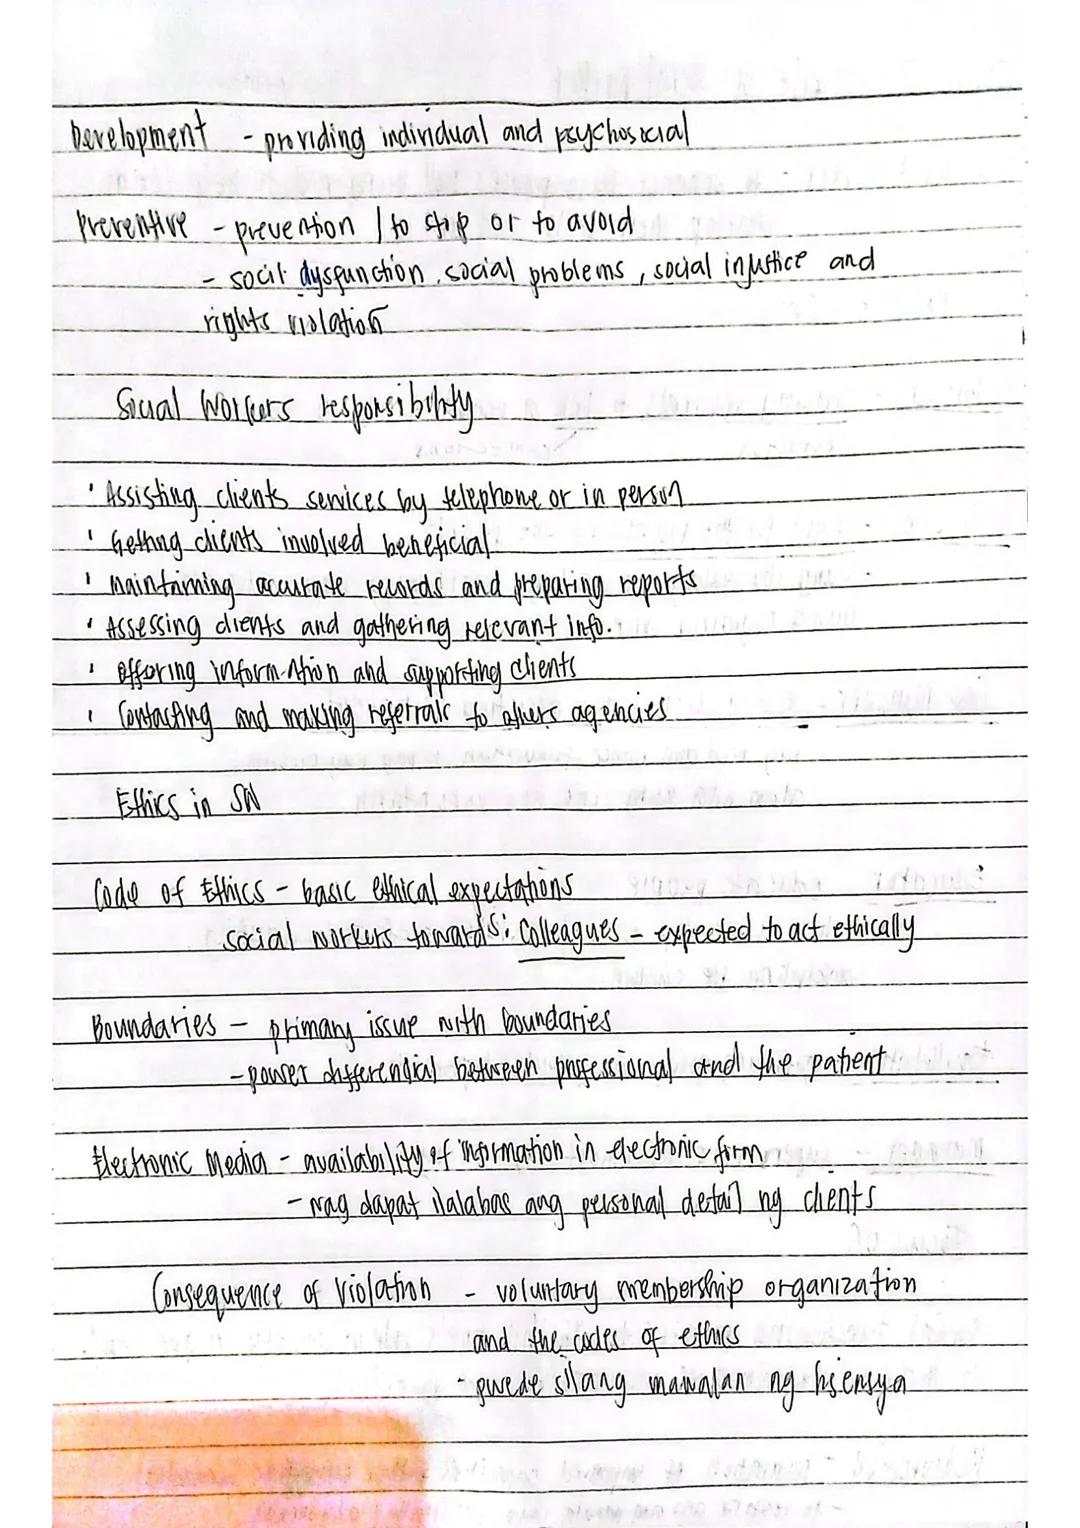 Development - providing individual and psychosocial
Preventive - prevention / to stop or to avoid
- social dysfunction, social problems, social injustice and
rights violation
Social Workers responsibility
' Assisting clients services by telephone or in person
' Getting clients involved beneficial
' maintaining accurate records and preparing reports
' Assessing clients and gathering relevant info.
' offering information and supporting clients
' Contacting and making referrals to others agencies
Ethics in SW
Code of Ethics - basic ethical expectations
social workers towards: Colleagues - expected to act ethically
Boundaries - primary issue with boundaries
- power differendial between professional and the patient
Electronic Media - availability of information in electronic form
- wag dapat ilalabas ang personal detail ng clients
Consequence of Violation - voluntary membership organization
and the codes of ethics
- pwede silang mawalan ng lisensya